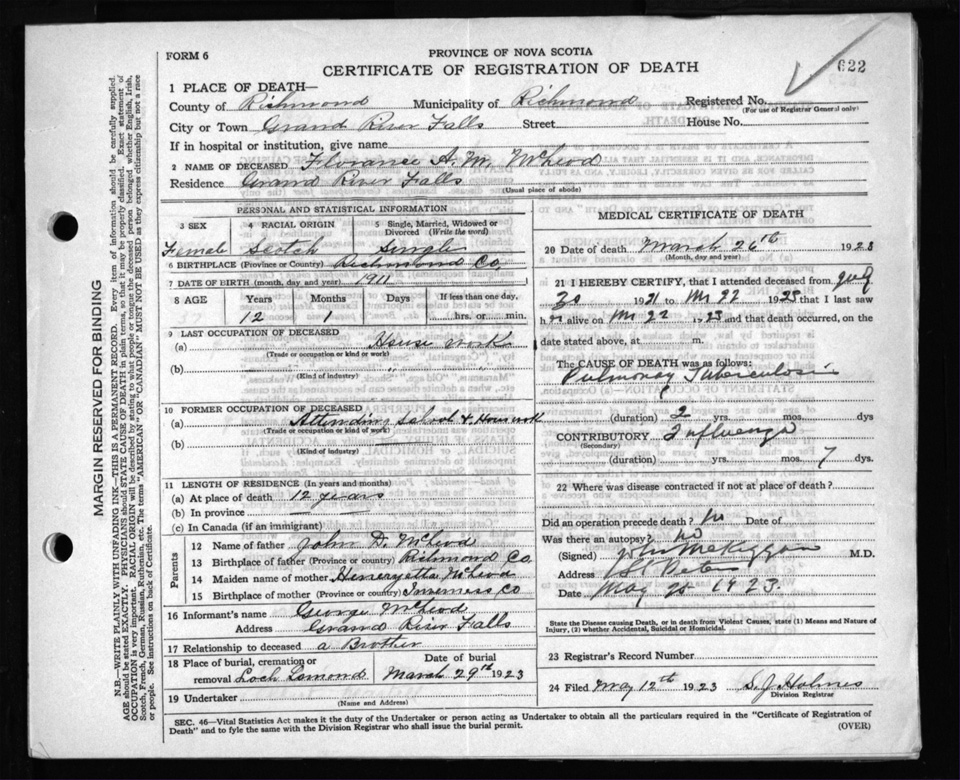 FORM 6
PROVINCE OF NOVA SCOTIA
CERTIFICATE OF REGISTRATION OF DEATH
622
1 PLACE OF DEATH—
County of Richmond Municipality of Richmond Registered No.
(For use of Registrar General only)
City or Town Grand River Falls Street House No.
If in hospital or institution, give name
2 NAME OF DECEASED Florance A. M. McLeod
Residence Grand River Falls
(Usual place of abode)
PERSONAL AND STATISTICAL INFORMATION
3 SEX 4 RACIAL ORIGIN 5 Single, Married, Widowed or Divorced (Write the word)
Female Scotch Single
6 BIRTHPLACE (Province or Country) Richmond Co
7 DATE OF BIRTH (month, day, and year) 1911
8 AGE Years Months Days If less than one day,
12 1 hrs. or min.
9 LAST OCCUPATION OF DECEASED
(a) House work
(Trade or occupation or kind of work)
(b) " "
(Kind of industry)
10 FORMER OCCUPATION OF DECEASED
(a) Attending School & Housework
(Trade or occupation or kind of work)
(b)
(Kind of industry)
11 LENGTH OF RESIDENCE (In years and months)
(a) At place of death 12 years
(b) In province
(c) In Canada (if an immigrant)
Parents
12 Name of father John D. McLeod
13 Birthplace of father (Province or country) Richmond Co.
14 Maiden name of mother Heneryetta McLeod
15 Birthplace of mother (Province or country) Inverness Co
16 Informant's name George McLeod
Address Grand River Falls
17 Relationship to deceased a Brother
18 Place of burial, cremation or removal Loch Lomond
Date of burial March 29th 1923
19 Undertaker
(Name and Address)
MEDICAL CERTIFICATE OF DEATH
20 Date of death March 26th 1923
(Month, day and year)
21 I HEREBY CERTIFY, that I attended deceased from July
20 1921 to Mr 22 1923 that I last saw
h alive on Mr 22 1923 and that death occurred, on the
date stated above, at m.
The CAUSE OF DEATH was as follows:
Pulmonary Tuberculosis
(duration) 2 yrs. mos. dys
CONTRIBUTORY Influenza
(Secondary)
(duration) yrs. mos. 7 dys.
22 Where was disease contracted if not at place of death?
Did an operation precede death? No Date of
Was there an autopsy? No
(Signed) M.D.
Address St Peters
Date May 1923.
State the Disease causing Death, or in death from Violent Causes, state (1) Means and Nature of
Injury, (2) whether Accidental, Suicidal or Homicidal.
23 Registrar's Record Number
24 Filed May 12th 1923 S. J. Holmes
Division Registrar
SEC. 46—Vital Statistics Act makes it the duty of the Undertaker or person acting as Undertaker to obtain all the particulars required in the "Certificate of Registration of
Death" and to fyle the same with the Division Registrar who shall issue the burial permit.
(OVER)
MARGIN RESERVED FOR BINDING
N.B.—WRITE PLAINLY WITH UNFADING INK—THIS IS A PERMANENT RECORD. Every item of information should be carefully supplied.
AGE should be stated EXACTLY. PHYSICIANS should STATE CAUSE OF DEATH in plain terms, so that it may be properly classified. Exact statement of
OCCUPATION is very important. RACIAL ORIGIN will be described by stating to what people or tongue the deceased person belonged whether English, Irish,
Scotch, French, German, Russian, Ruthenian, etc. The terms "AMERICAN" or "CANADIAN" MUST NOT BE USED as they express citizenship but not a race
or people. See instructions on back of Certificate.